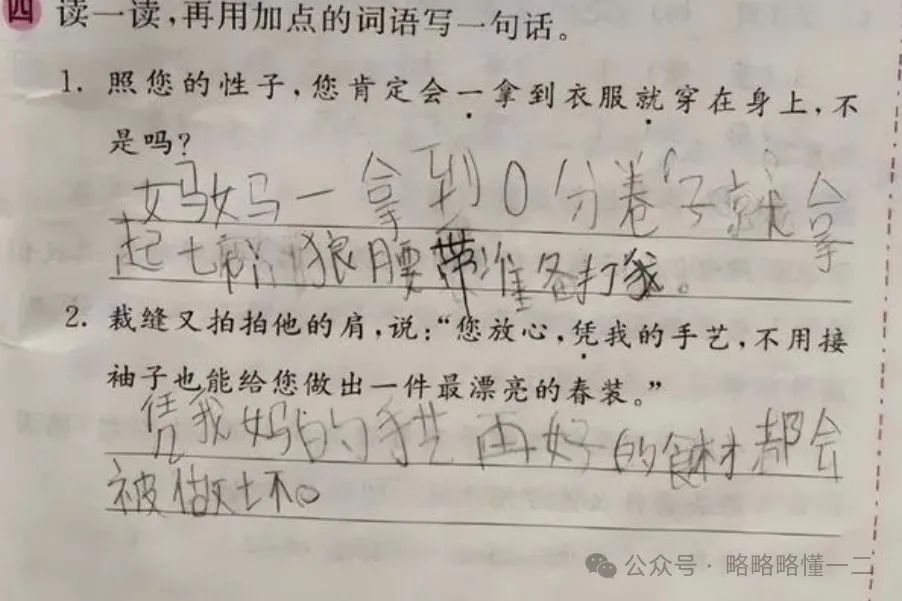 四 读一读,再用加点的词语写一句话。
1. 照您的性子,您肯定会一拿到衣服就穿在身上,不
是吗?
妈妈一拿到0分卷子就拿
起七匹狼腰带准备打我。
2. 裁缝又拍拍他的肩,说:“您放心,凭我的手艺,不用接
袖子也能给您做出一件最漂亮的春装。”
凭我妈的手艺再好的食材都会
被做坏。
公众号·略略略懂一二